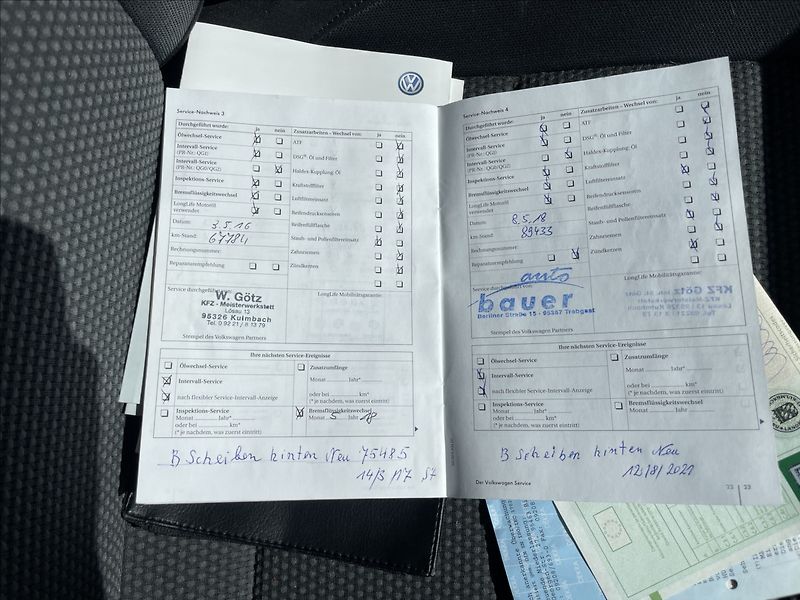 Service-Nachweis 3
Durchgeführt wurde: ja nein
Ölwechsel-Service
Intervall-Service
(PR-Nr.: QGI)
Intervall-Service
(PR-Nr.: QG0/QG2)
Inspektions-Service
Bremsflüssigkeitswechsel
LongLife Motoröl
verwendet
Datum: 3.5.16
km-Stand: 67784
Rechnungsnummer:
Reparaturempfehlung
Zusatzarbeiten – Wechsel von: ja nein
ATF
DSG®: Öl und Filter
Haldex-Kupplung: Öl
Kraftstofffilter
Luftfiltereinsatz
Reifendruckseisen
Reifenfüllflasche
Staub- und Pollenfiltereinsatz
Zahnriemen
Zündkerzen
Service durchgeführt von:
W. Götz
KFZ - Meisterwerkstatt
Lösau 13
95326 Kulmbach
Tel. 0 92 21 / 8 13 79
Stempel des Volkswagen Partners
LongLife Mobilitätsgarantie:
Ihre nächsten Service-Ereignisse
Ölwechsel-Service
Intervall-Service
nach flexibler Service-Intervall-Anzeige
Inspektions-Service
Monat Jahr*
oder bei km*
(* je nachdem, was zuerst eintritt)
Zusatzumfänge
Monat Jahr*
oder bei km*
(* je nachdem, was zuerst eintritt)
Bremsflüssigkeitswechsel
Monat 5 Jahr 18
B Scheiben hinten Neu 75485
Service-Nachweis 4
Durchgeführt wurde: ja nein
Ölwechsel-Service
Intervall-Service
(PR-Nr.: QGI)
Intervall-Service
(PR-Nr.: QG0/QG2)
Inspektions-Service
Bremsflüssigkeitswechsel
LongLife Motoröl
verwendet
Datum: 8.5.18
km-Stand: 89433
Rechnungsnummer:
Reparaturempfehlung
Zusatzarbeiten – Wechsel von: ja nein
ATF
DSG®: Öl und Filter
Haldex-Kupplung: Öl
Kraftstofffilter
Luftfiltereinsatz
Reifenfüllflasche
Staub- und Pollenfiltereinsatz
Zahnriemen
Zündkerzen
Service durchgeführt von:
auto
bauer
Berliner Straße 15 - 95367 Trebgast
Stempel des Volkswagen Partners
LongLife Mobilitätsgarantie:
Ihre nächsten Service-Ereignisse
Ölwechsel-Service
Intervall-Service
nach flexibler Service-Intervall-Anzeige
Inspektions-Service
Monat Jahr*
oder bei km*
(* je nachdem, was zuerst eintritt)
Zusatzumfänge
Monat Jahr*
oder bei km*
(* je nachdem, was zuerst eintritt)
Bremsflüssigkeitswechsel
Monat Jahr*
B Scheiben hinten Neu
12/8/2021
Der Volkswagen Service